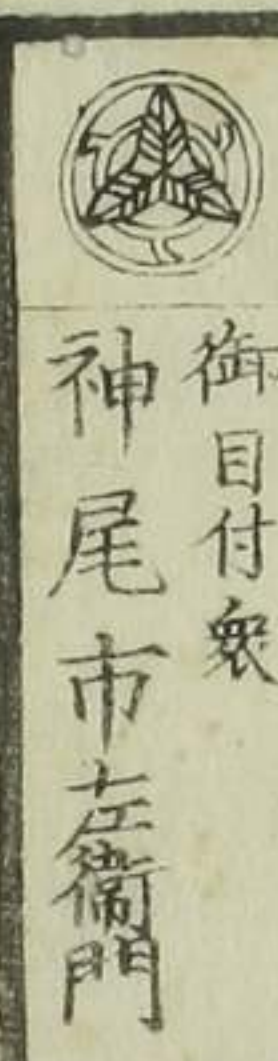 御目付衆
神尾市左衞門